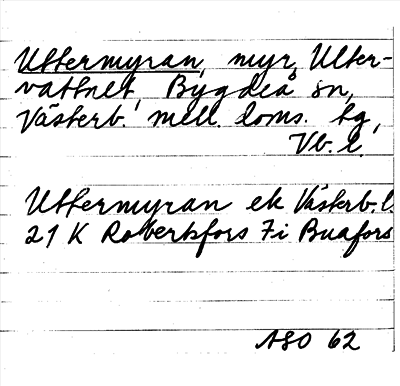 Uttermyran, myr, Utter-
vattnet, Bygdeå sn,
Västerb. mell. doms. tg,
Vb. l.
Uttermyran ek Västerb. l.
21 K Robertsfors 7i Buafors
ASO 62